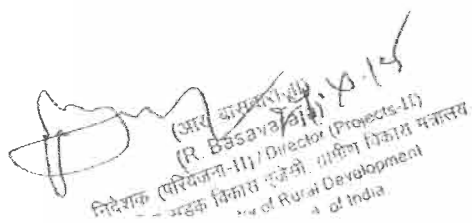 (आर.
(R. Basavaraja)
निदेशक (परियोजना-II) / Director (Projects-II)
सड़क विकास एजेंसी, ग्रामीण विकास मंत्रालय
of Rural Development
of India